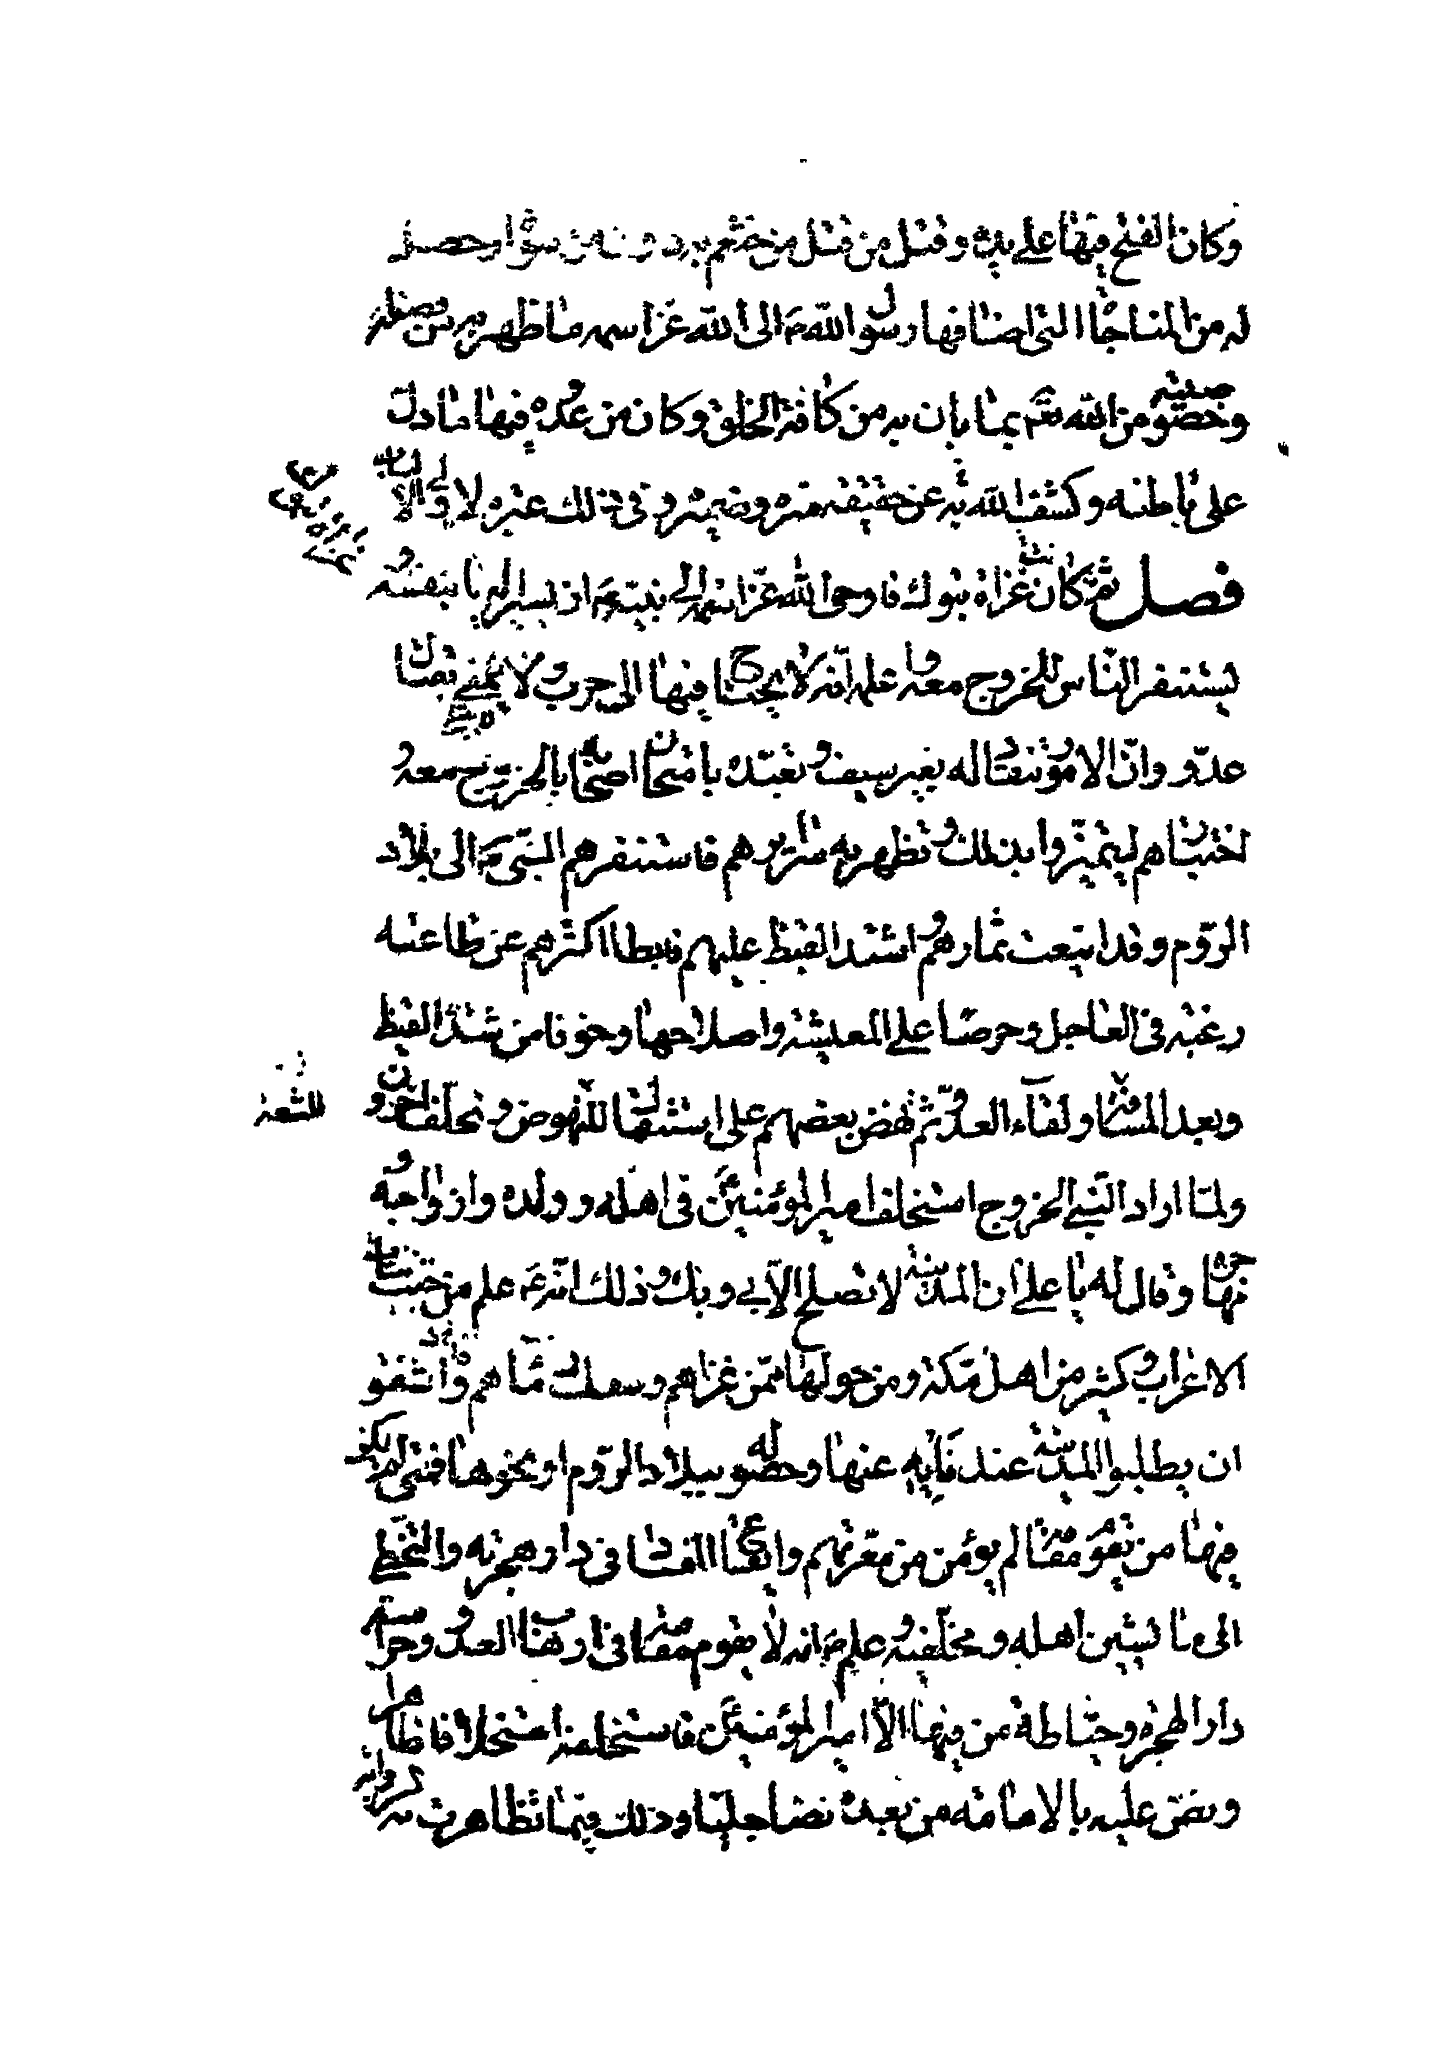 وكان الفتح فيها على يده وقتل من قتل من خثعم به دونه من سواه وحصل
له من المناجاة التى اضافها رسول الله ص الى الله عز اسمه ما ظهر به من فضله
وخصوصيته من الله عز بما بان به من كافة الخلق وكان من عدوه فيها ما دل
على باطنه وكشف الله به عن حقيقة سره وضميره وفى ذلك عبرة لاولى الالباب
غزوة تبوك
فصل ثم كانت غزاة تبوك فاوحى الله عز اسمه الى نبيه ص ان يسير اليها بنفسه و
يستنفر الناس للخروج معه واعلمه انه لا يحتاج فيها الى حرب ولا يمنى بقتال
عدو وان الامور تنقاد له بغير سيف وتعبده بامتحان اصحابه بالخروج معه و
اختبارهم ليتميزوا بذلك وتظهر به سرائرهم فاستنفرهم النبى ص الى بلاد
الروم وقد اينعت ثمارهم واشتد القيظ عليهم فابطا اكثرهم عن طاعته
رغبة فى العاجل وحرصا على المعيشة واصلاحها وخوفا من شدة القيظ
وبعد المسافة ولقاء العدو ثم نهض بعضهم على استثقال للنهوض وتخلف اخرون
للشقة
ولما اراد النبى الخروج استخلف امير المؤمنين فى اهله وولده وازواجه و
مهاجره وقال له يا على ان المدينة لا تصلح الا بى وبك وذلك انه ع علم من خبث نيات
الاعراب وكثير من اهل مكة ومن حولها ممن غزاهم وسفك دماءهم فاشفق
ان يطلبوا المدينة عند نأيه عنها وحصوله ببلاد الروم او نحوها فمتى لم يكن
فيها من يقوم مقامه لم يؤمن من معرتهم وايقاع الفساد فى دار هجرته والتخطى
الى ما يشين اهله ومخلفيه وعلم ص انه لا يقوم مقامه فى ارهاب العدو وحراسة
دار الهجرة وحياطة من فيها الا امير المؤمنين فاستخلفه استخلافا ظاهرا
ونص عليه بالامامة من بعده نصا جليا وذلك فيما تظاهرت به الرواية